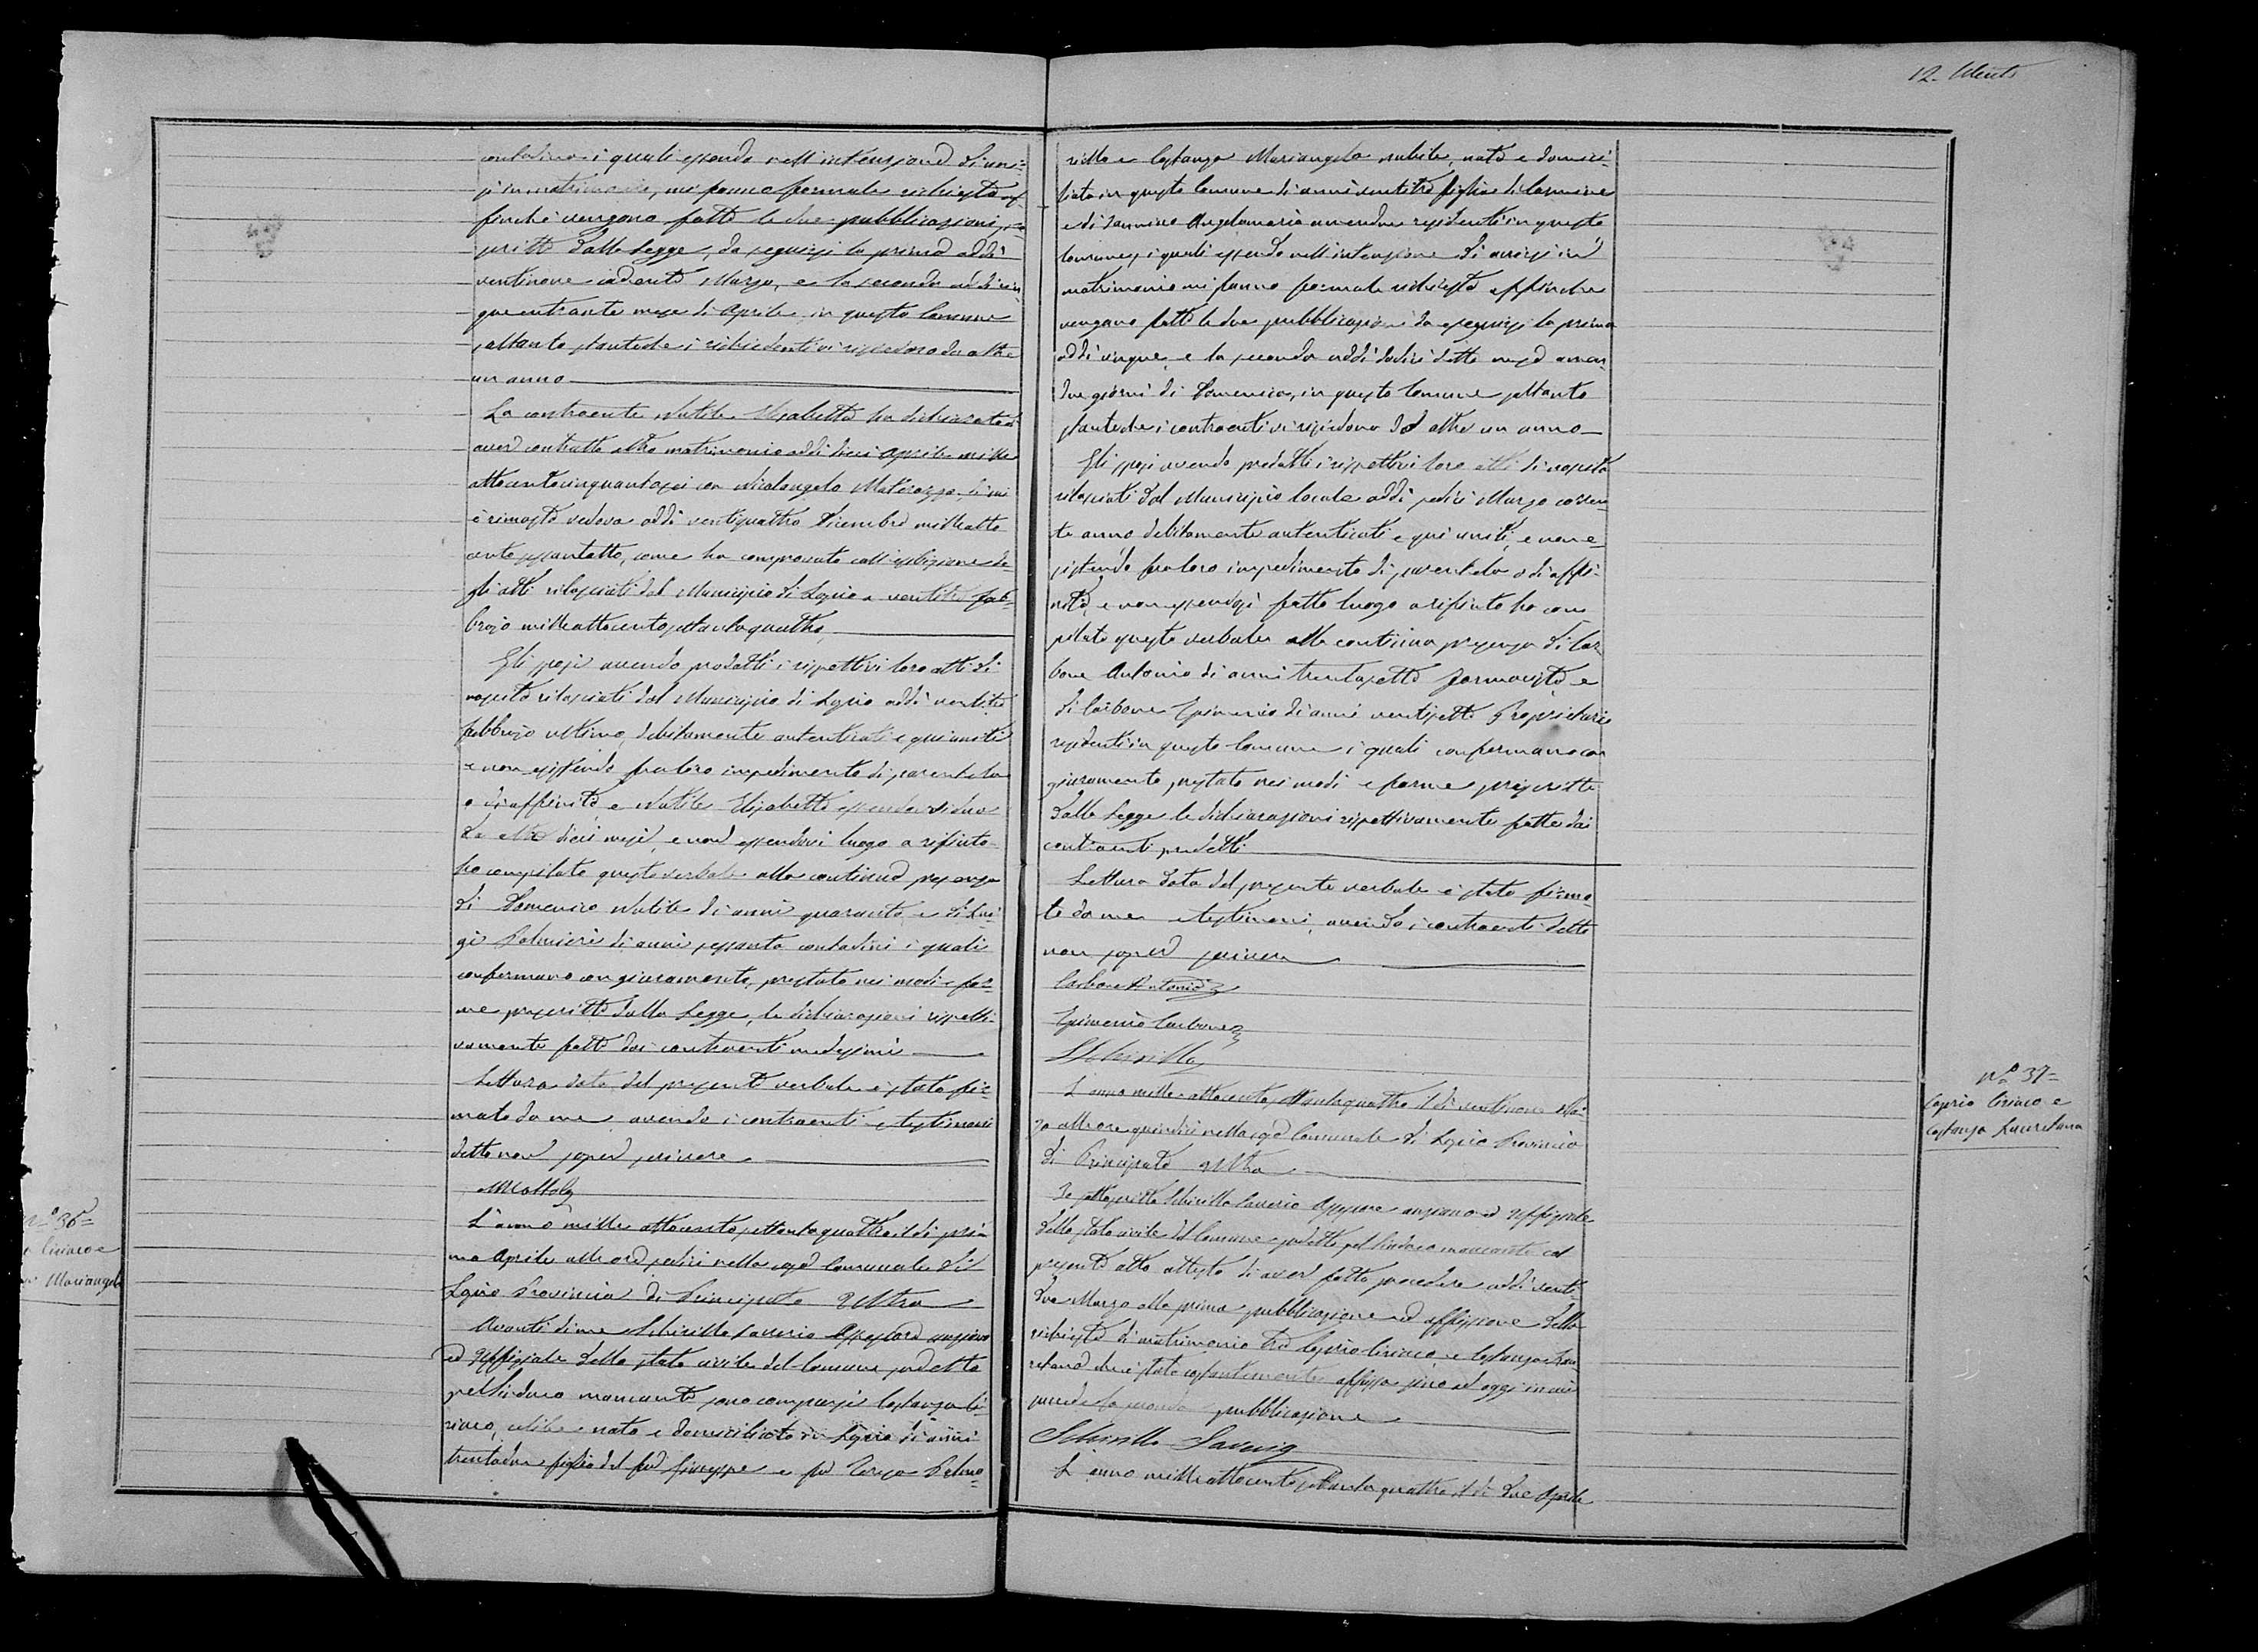 12.
contadina i quali essendo nell'intenzione di unir=
si in matrimonio, mi fanno formale richiesta af
finchè vengano fatte le due pubblicazioni pre
scritte dalla Legge, da seguirsi la prima addì
ventinove cadente Marzo, e la seconda addì cin
que entrante mese di Aprile in questo Comune
soltanto stantechè i richiedenti vi risiedono da oltre
un anno
La contraente Natile Elisabetta ha dichiarato di
aver contratto altro matrimonio addì dieci Aprile mille
ottocentocinquantasei con Nicolangelo di cui
è rimasta vedova addì ventiquattro Dicembre milleotto
centosessantotto, come ha comprovato coll'esibizione de
gli atti rilasciati dal Municipio di Sogio a ventitre feb=
brajo milleottocentosettantaquattro
Gli sposi avendo prodotti i rispettivi loro atti di
nascita rilasciati dal Municipio di addì ventitre
febbrajo ultimo, debitamente autenticati e qui uniti
e non esistendo fra loro impedimento di parentela
o di affinità, e Natile Elisabetta essendo vedova
da oltre dieci mesi, e non essendovi luogo a rifiuto
ho compilato questo verbale alla continua presenza
di Domenico Natile di anni quaranta, e di Lui=
gi Palmieri di anni sessanta contadini i quali
confermano con giuramento, prestato nei modi e for=
me prescritte dalla Legge, le dichiarazioni rispetti
vamente fatte dai contraenti medesimi
Lettura data del presente verbale è stato fir=
mato da me avendo i contraenti e testimoni
detto non saper scrivere
N.° 36=
Ciriaco e
Mariangela
L'anno mille ottocento settantaquattro il dì pri
mo Aprile alle ore sedici nella casa Comunale di
Provincia di Principato Ultra
Avanti di me Schirillo Saverio Assessore anziano
ed Uffiziale dello stato civile del Comune suddetto
pel Sindaco mancante sono comparsi Costanzo Ci=
riaco, celibe nato e domiciliato in di anni
trentadue figlio del fu Giuseppe e fu Teresa
e Costanza Mariangela nubile, nata e domici=
liata in questo Comune di anni ventitre figlia di Carmine
e di Angelamaria amendue residenti in questo
Comune, i quali essendo nell'intenzione di unirsi in
matrimonio mi fanno formale richiesta affinchè
vengano fatte le due pubblicazioni da eseguirsi la prima
addì cinque, e la seconda addì dodici detto mese amen=
due giorni di Domenica, in questo Comune soltanto
stantechè i contraenti vi risiedono da oltre un anno
Gli sposi avendo prodotti i rispettivi loro atti di nascita
rilasciati dal Municipio locale addì sedici Marzo corren
te anno debitamente autenticati e qui uniti, e non e=
sistendo fra loro impedimento di parentela o di affi=
nità, e non essendosi fatto luogo a rifiuto ho com
pilato questo verbale alla continua presenza di Car
bone Antonio di anni trentasette Farmacista, e
di Carbone Epimenio di anni ventisette Proprietario
residenti in questo Comune i quali confermano con
giuramento prestato nei modi e forme prescritte
dalla Legge le dichiarazioni rispettivamente fatte dai
contraenti predetti
Lettura data del presente verbale è stato firma=
to da me e testimoni, avendo i contraenti detto
non saper scrivere
Carbone Antonio
Epimenio Carbone
SSchirillo
N.° 37=
Caprio Ciriaco e
Costanza Lauretana
L'anno mille ottocento settantaquattro il dì ventinove Mar=
zo alle ore quindici nella casa Comunale di Provincia
di Principato Ultra
Io sottoscritto Schirillo Saverio Assessore anziano ed Uffiziale
dello stato civile del Comune suddetto pel Sindaco mancante col
presente atto attesto di aver fatto procedere addì venti
due Marzo alla prima pubblicazione ed affissione della
richiesta di matrimonio tra Caprio Ciriaco, e Costanza Lau=
retana che è stata costantemente affissa sino ad oggi in cui
succede la seconda pubblicazione
Schirillo Saverio
L'anno mille ottocento settantaquattro il dì due Aprile